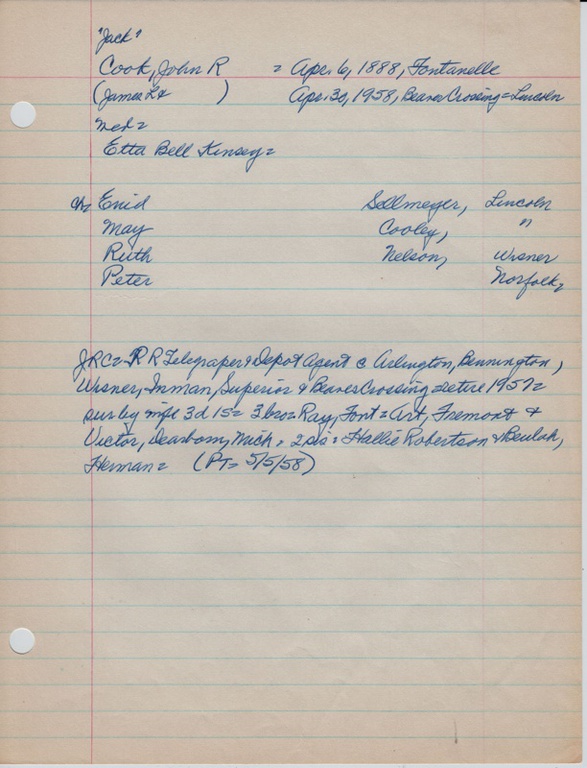 "Jack"
Cook, John R = Apr. 6, 1888, Fontanelle
(James L & ) Apr. 30, 1958, Beaver Crossing = Lincoln
Med =
Etta Bell Kinsey =
Ch, Enid Sellmeyer, Lincoln
May Cooley, "
Ruth Nelson, Wisner
Peter Norfolk,
JRC = R R Telegraper & Depot Agent @ Arlington, Bennington,
Wisner, Inman, Superior & Beaver Crossing = retire 1957 =
sur by wife 3d 1s = 3 bro = Ray, Font = Art, Fremont &
Victor, Dearborn, Mich. = 2 sis = Hallie Robertson & Beulah,
Herman = (PT = 5/5/58)